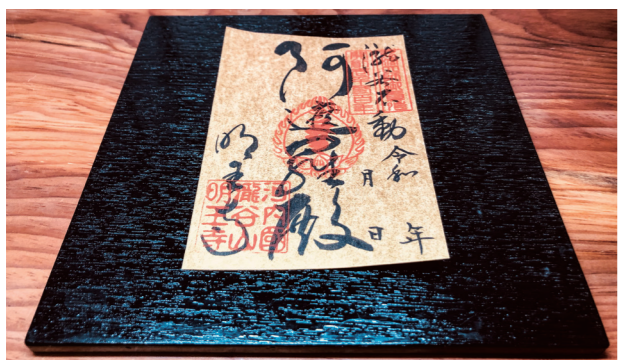 瀧谷不動
令和
年
月
日
阿遮羅 殿
明王寺
河内國
瀧谷山
明王寺